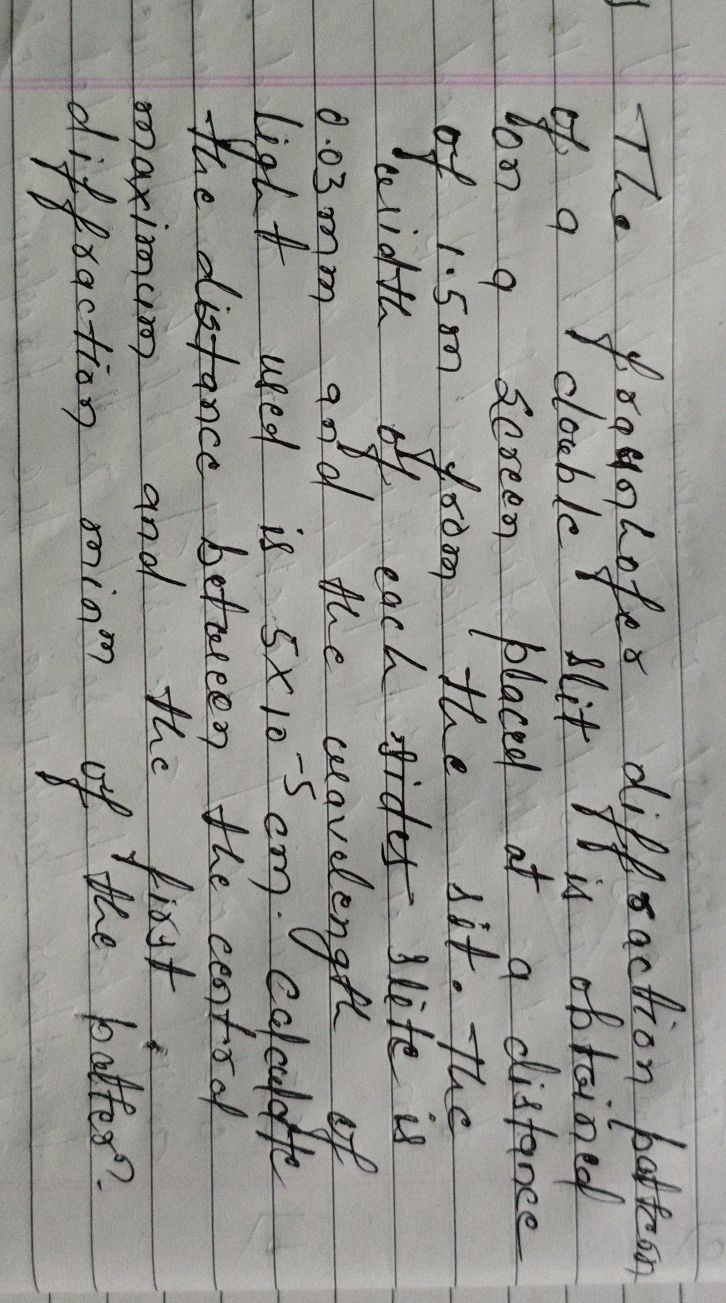 The fraunhofer diffraction pattern
of a double slit is obtained
on a screen placed at a distance
of 1.5m from the sit. The
width of each slits is
0.03mm and the wavelength of
light used is 5×10⁻⁵cm. calculate
the distance between the central
maximum and the first
diffraction minᵐ of the patter?